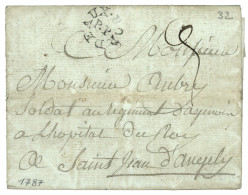 32
Monsieur
Monsieur Aubry
Soldat au regiment d'agenois
a Lhopital du Roy
a Saint Jean d'angely
1787